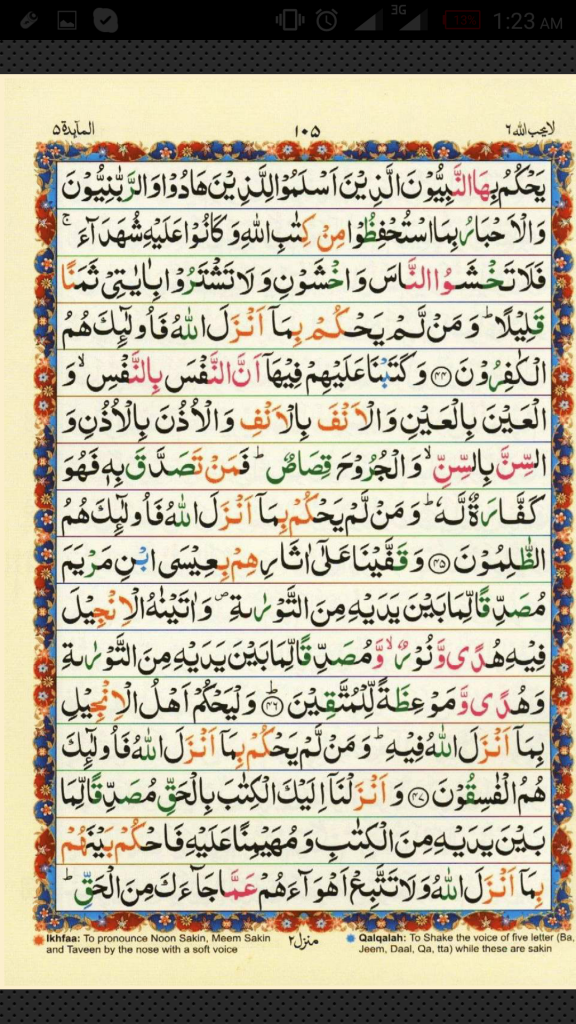 3G
1:23 AM
المآئدة ۵
۱۰۵
لا يحب الله ۶
يَحْكُمُ بِهَا النَّبِيُّوْنَ الَّذِيْنَ اَسْلَمُوْا لِلَّذِيْنَ هَادُوْا وَالرَّبّٰنِيُّوْنَ
وَالْاَحْبَارُ بِمَا اسْتُحْفِظُوْا مِنْ كِتٰبِ اللّٰهِ وَكَانُوْا عَلَيْهِ شُهَدَآءَ ۚ
فَلَا تَخْشَوُا النَّاسَ وَاخْشَوْنِ وَلَا تَشْتَرُوْا بِاٰيٰتِيْ ثَمَنًا
قَلِيْلًا ؕ وَمَنْ لَّمْ يَحْكُمْ بِمَاۤ اَنْزَلَ اللّٰهُ فَاُولٰٓئِكَ هُمُ
الْكٰفِرُوْنَ ۴۴ وَكَتَبْنَا عَلَيْهِمْ فِيْهَاۤ اَنَّ النَّفْسَ بِالنَّفْسِ ۙ وَ
الْعَيْنَ بِالْعَيْنِ وَالْاَنْفَ بِالْاَنْفِ وَالْاُذُنَ بِالْاُذُنِ وَ
السِّنَّ بِالسِّنِّ ۙ وَالْجُرُوْحَ قِصَاصٌ ؕ فَمَنْ تَصَدَّقَ بِهٖ فَهُوَ
كَفَّارَةٌ لَّهٗ ؕ وَمَنْ لَّمْ يَحْكُمْ بِمَاۤ اَنْزَلَ اللّٰهُ فَاُولٰٓئِكَ هُمُ
الظّٰلِمُوْنَ ۴۵ وَقَفَّيْنَا عَلٰۤى اٰثَارِهِمْ بِعِيْسَى ابْنِ مَرْيَمَ
مُصَدِّقًا لِّمَا بَيْنَ يَدَيْهِ مِنَ التَّوْرٰىةِ ۪ وَاٰتَيْنٰهُ الْاِنْجِيْلَ
فِيْهِ هُدًى وَّنُوْرٌ ۙ وَّمُصَدِّقًا لِّمَا بَيْنَ يَدَيْهِ مِنَ التَّوْرٰىةِ
وَهُدًى وَّمَوْعِظَةً لِّلْمُتَّقِيْنَ ۴۶ؕ وَلْيَحْكُمْ اَهْلُ الْاِنْجِيْلِ
بِمَاۤ اَنْزَلَ اللّٰهُ فِيْهِ ؕ وَمَنْ لَّمْ يَحْكُمْ بِمَاۤ اَنْزَلَ اللّٰهُ فَاُولٰٓئِكَ
هُمُ الْفٰسِقُوْنَ ۴۷ وَاَنْزَلْنَاۤ اِلَيْكَ الْكِتٰبَ بِالْحَقِّ مُصَدِّقًا لِّمَا
بَيْنَ يَدَيْهِ مِنَ الْكِتٰبِ وَمُهَيْمِنًا عَلَيْهِ فَاحْكُمْ بَيْنَهُمْ
بِمَاۤ اَنْزَلَ اللّٰهُ وَلَا تَتَّبِعْ اَهْوَآءَهُمْ عَمَّا جَآءَكَ مِنَ الْحَقِّ ؕ
منزل ۲
Ikhfaa: To pronounce Noon Sakin, Meem Sakin
and Taveen by the nose with a soft voice
Qalqalah: To Shake the voice of five letter (Ba,
Jeem, Daal, Qa, tta) while these are sakin